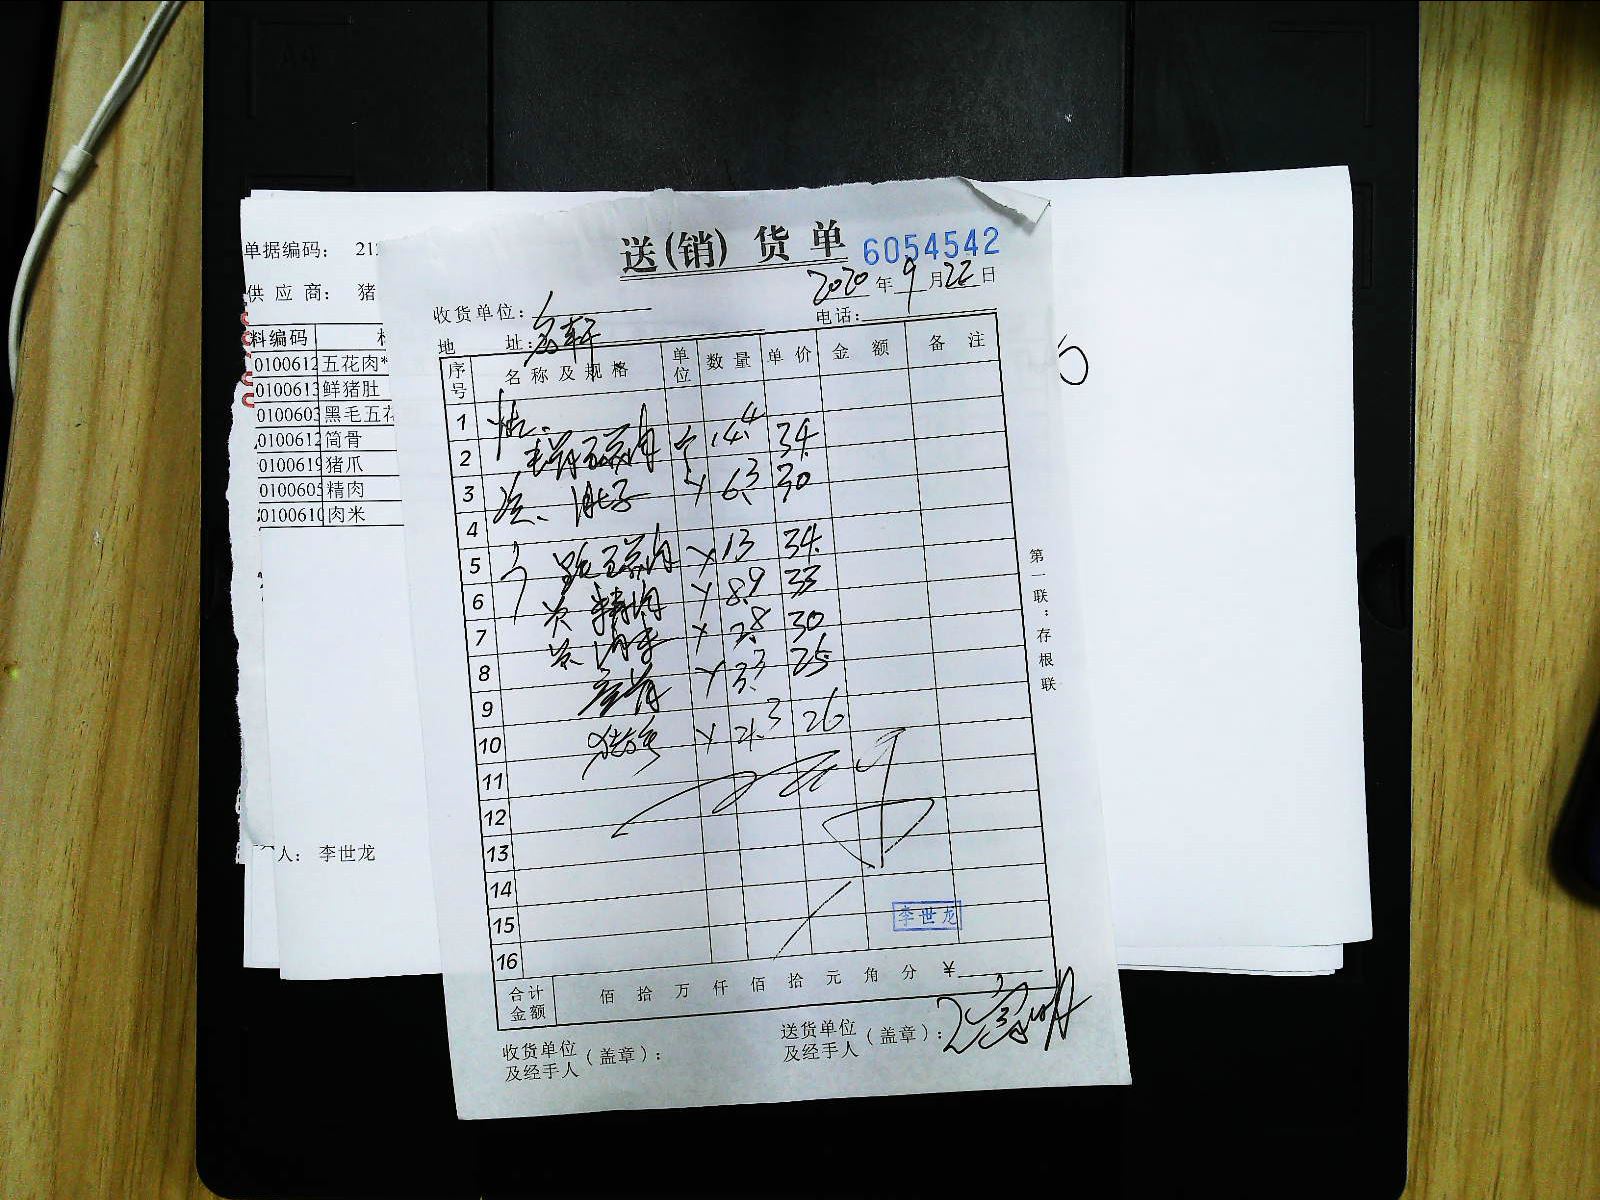 单据编码： 21
供 应 商： 猪
料编码
0100612 五花肉*
010061 鲜猪肚
0100603 黑毛五花
0100612 筒骨
0100619 猪爪
0100605 精肉
0100610 肉米
人： 李世龙
送(销) 货 单 6054542
2020 年 9 月 22 日
收货单位：
电话：
地 址： 轩
序号 名 称 及 规 格 单位 数 量 单 价 金 额 备 注
1
2 五花肉 14.4 34
3 肚子 6.3 30
4
5 五花肉 13 34
6 精肉 8.9 33
7 2.8 30
8 3.3 25
9
10 2.3 26
11
12
13
14
15
16
李世龙
合计金额 佰 拾 万 仟 佰 拾 元 角 分 ¥
收货单位及经手人（盖章）：
送货单位及经手人（盖章）：
第一联：存根联